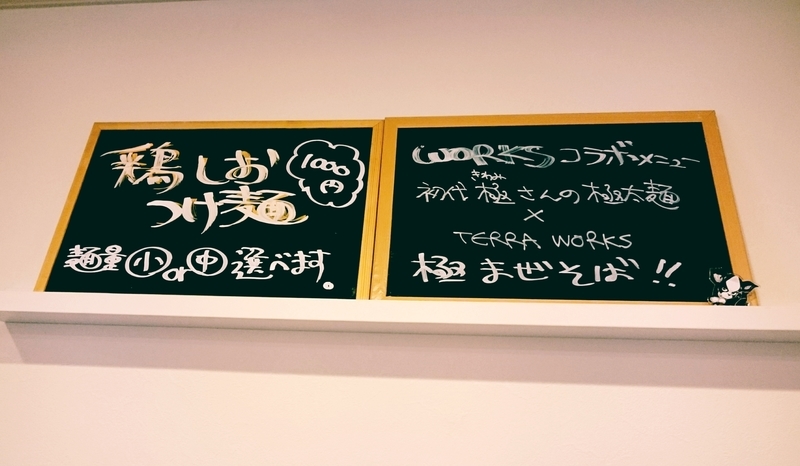 鶏しお
つけ麺
1000
円
麺量小or中選べます
WORKSコラボメニュー
きわみ
初代極さんの極太麺
×
TERRA WORKS
極まぜそば!!